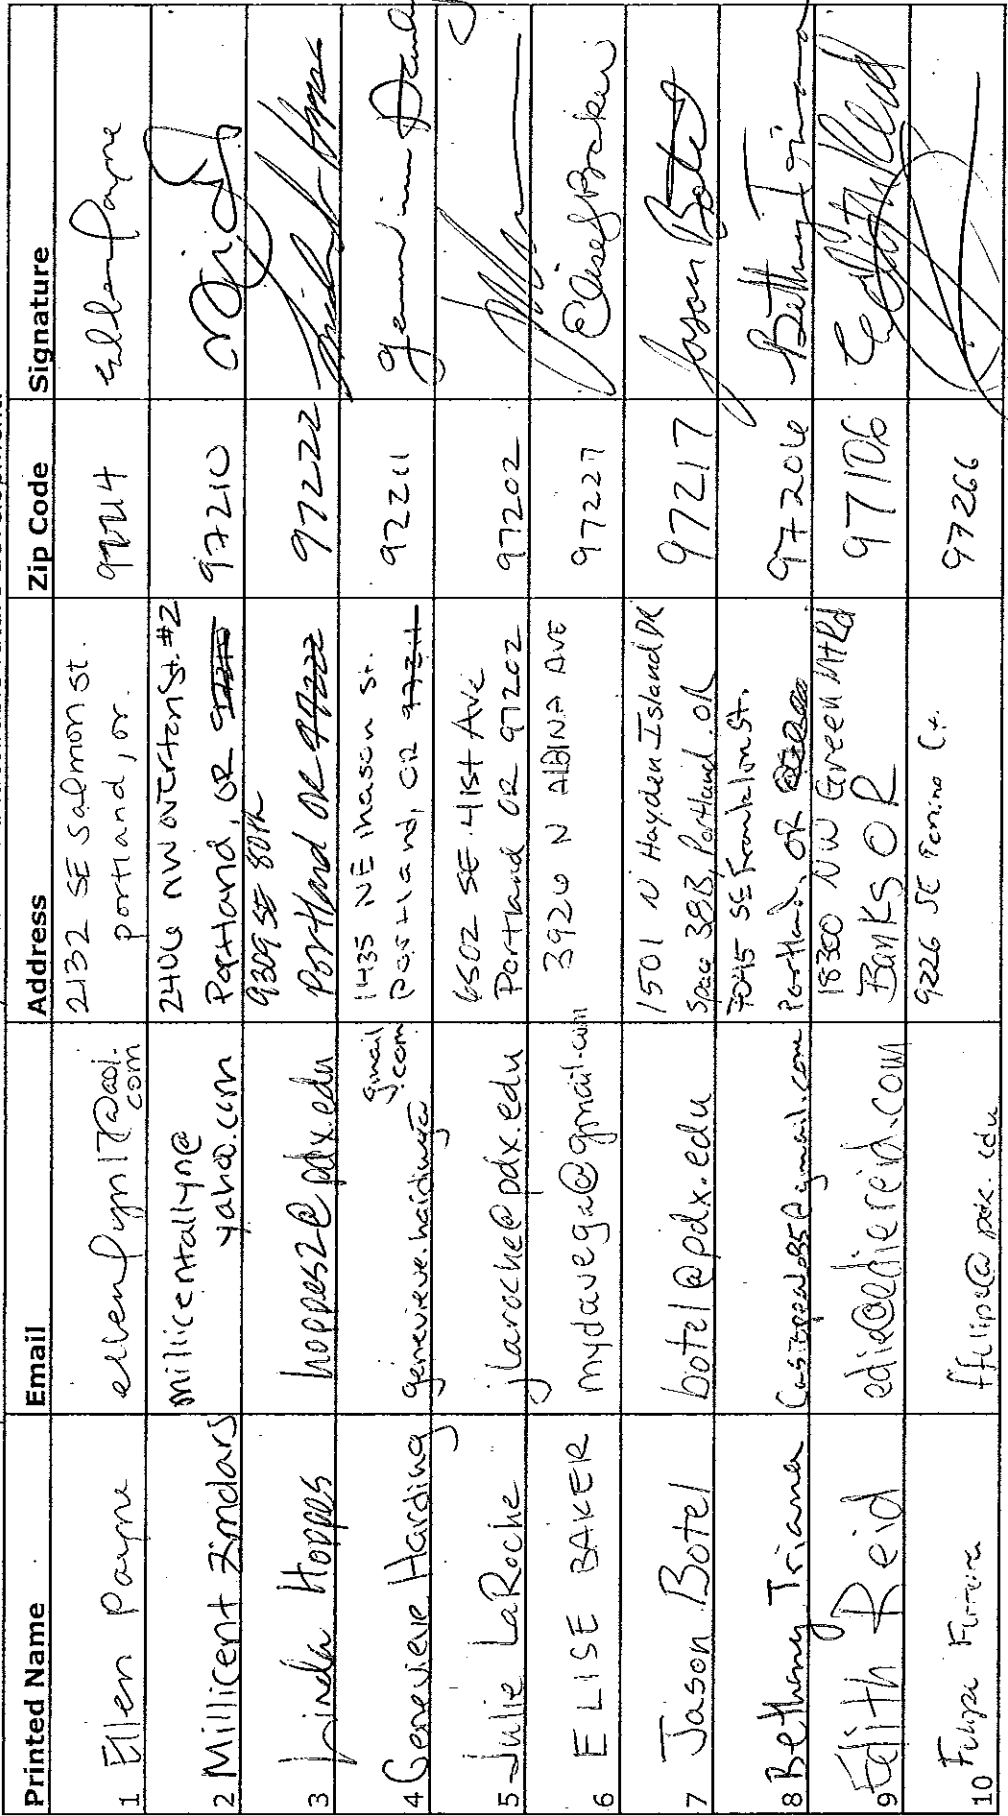 Printed Name Email Address Zip Code Signature
1 Ellen Payne
2132 SE Salmon st.
portland, or.
Ellen Payne
2 Millicent Zindars
millicentallyn@
yahoo.com
2406 NW Overton St. #2
Portland, OR
97210
3 Linda Hoppes
hoppes2@pdx.edu
9309 SE 80th
Portland OR 97222
97222
4 Genevieve Harding
gmail
.com
1435 NE Mason St.
Portland, OR 97211
97211
5 Julie LaRoche
jlaroche@pdx.edu
6502 SE 41st Ave
Portland OR 97202
97202
6 ELISE BAKER
mydavega@gmail.com
3926 N ALBINA AVE
97227
Elise Baker
7 Jason Botel
botel@pdx.edu
1501 N Hayden Island DR
Space 38B, Portland. OR
97217
Jason Botel
8 Bethany Triana
7045 SE Franklin St.
Portland, OR
97206
Bethany Triana
9 Edith Reid
edie@ediereid.com
18300 NW Green Mt Rd
Banks OR
97106
Edith Reid
10 Felipe
9226 SE Tenino Ct.
97266